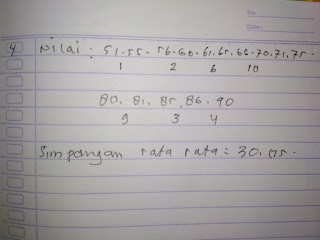 No:
Date:
4 Nilai : 51-55. 56-60. 61-65. 66-70. 71-75.
1 2 6 10
80. 81. 85, 86. 90
9 3 4
Simpangan rata rata = 30,